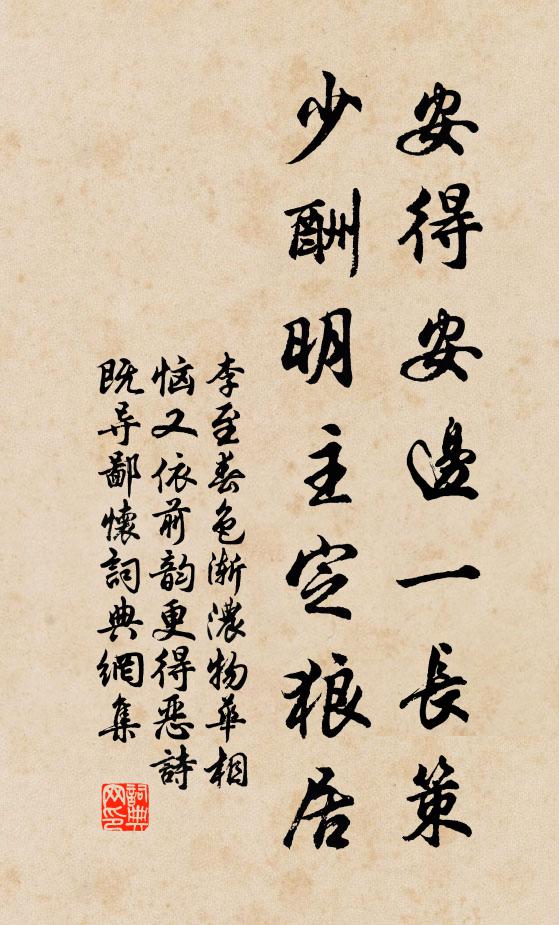 安得安邊一長策
少酬明主定狼居
李至春色漸濃物華相
恼又依前韵更得惡詩
既导鄙懷詞典網集
詞典
网印